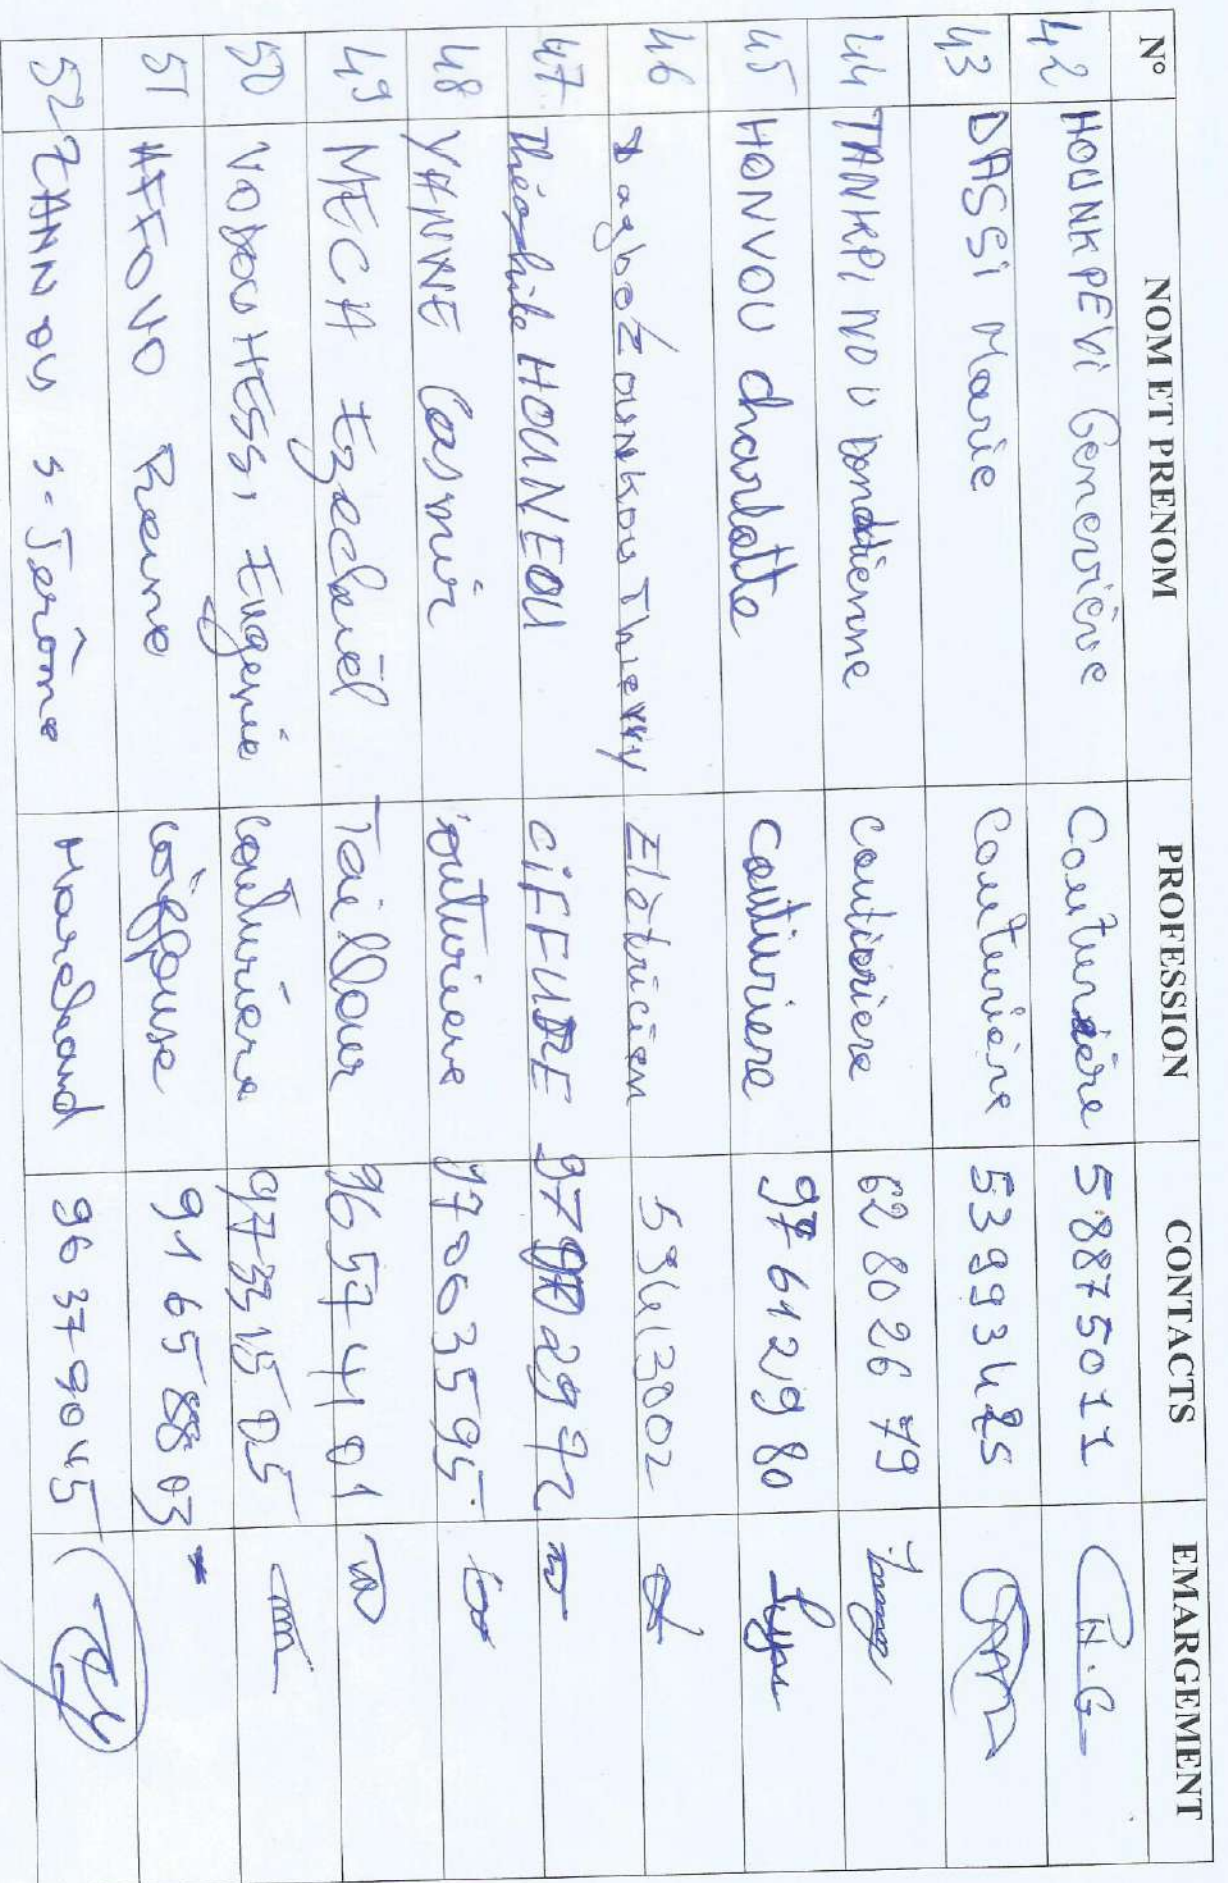 N° NOM ET PRENOM PROFESSION CONTACTS EMARGEMENT
42 HOUNKPEVI Geneviève Couturière 58875011 H.G
43 DASSI Marie Couturière 53993425
44 TANKPINOU Donatienne Couturiere 62 80 26 79
45 HONVOU charlotte Couturiere 97 61 29 80
46 DagboZounkou Thierry Elètricien 59413002
47 Théophile HOUNEOU CiFFURE 97902972
48 YANNNE Casmir couturiere 97003595
49 MECHA Ezechiël Tailleur 96574101
50 VODOUHESSI Eugenie Couturière 97331505
51 AFFOVO Reine Coiffeuse 91 65 88 03
52 ZANNOU S-Jerôme Marchand 96 37 90 45